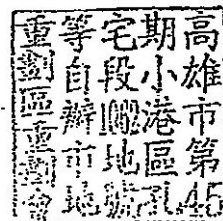 高雄市第45
期小港區孔
宅段1082地號
等自辦市地
重劃區重劃會